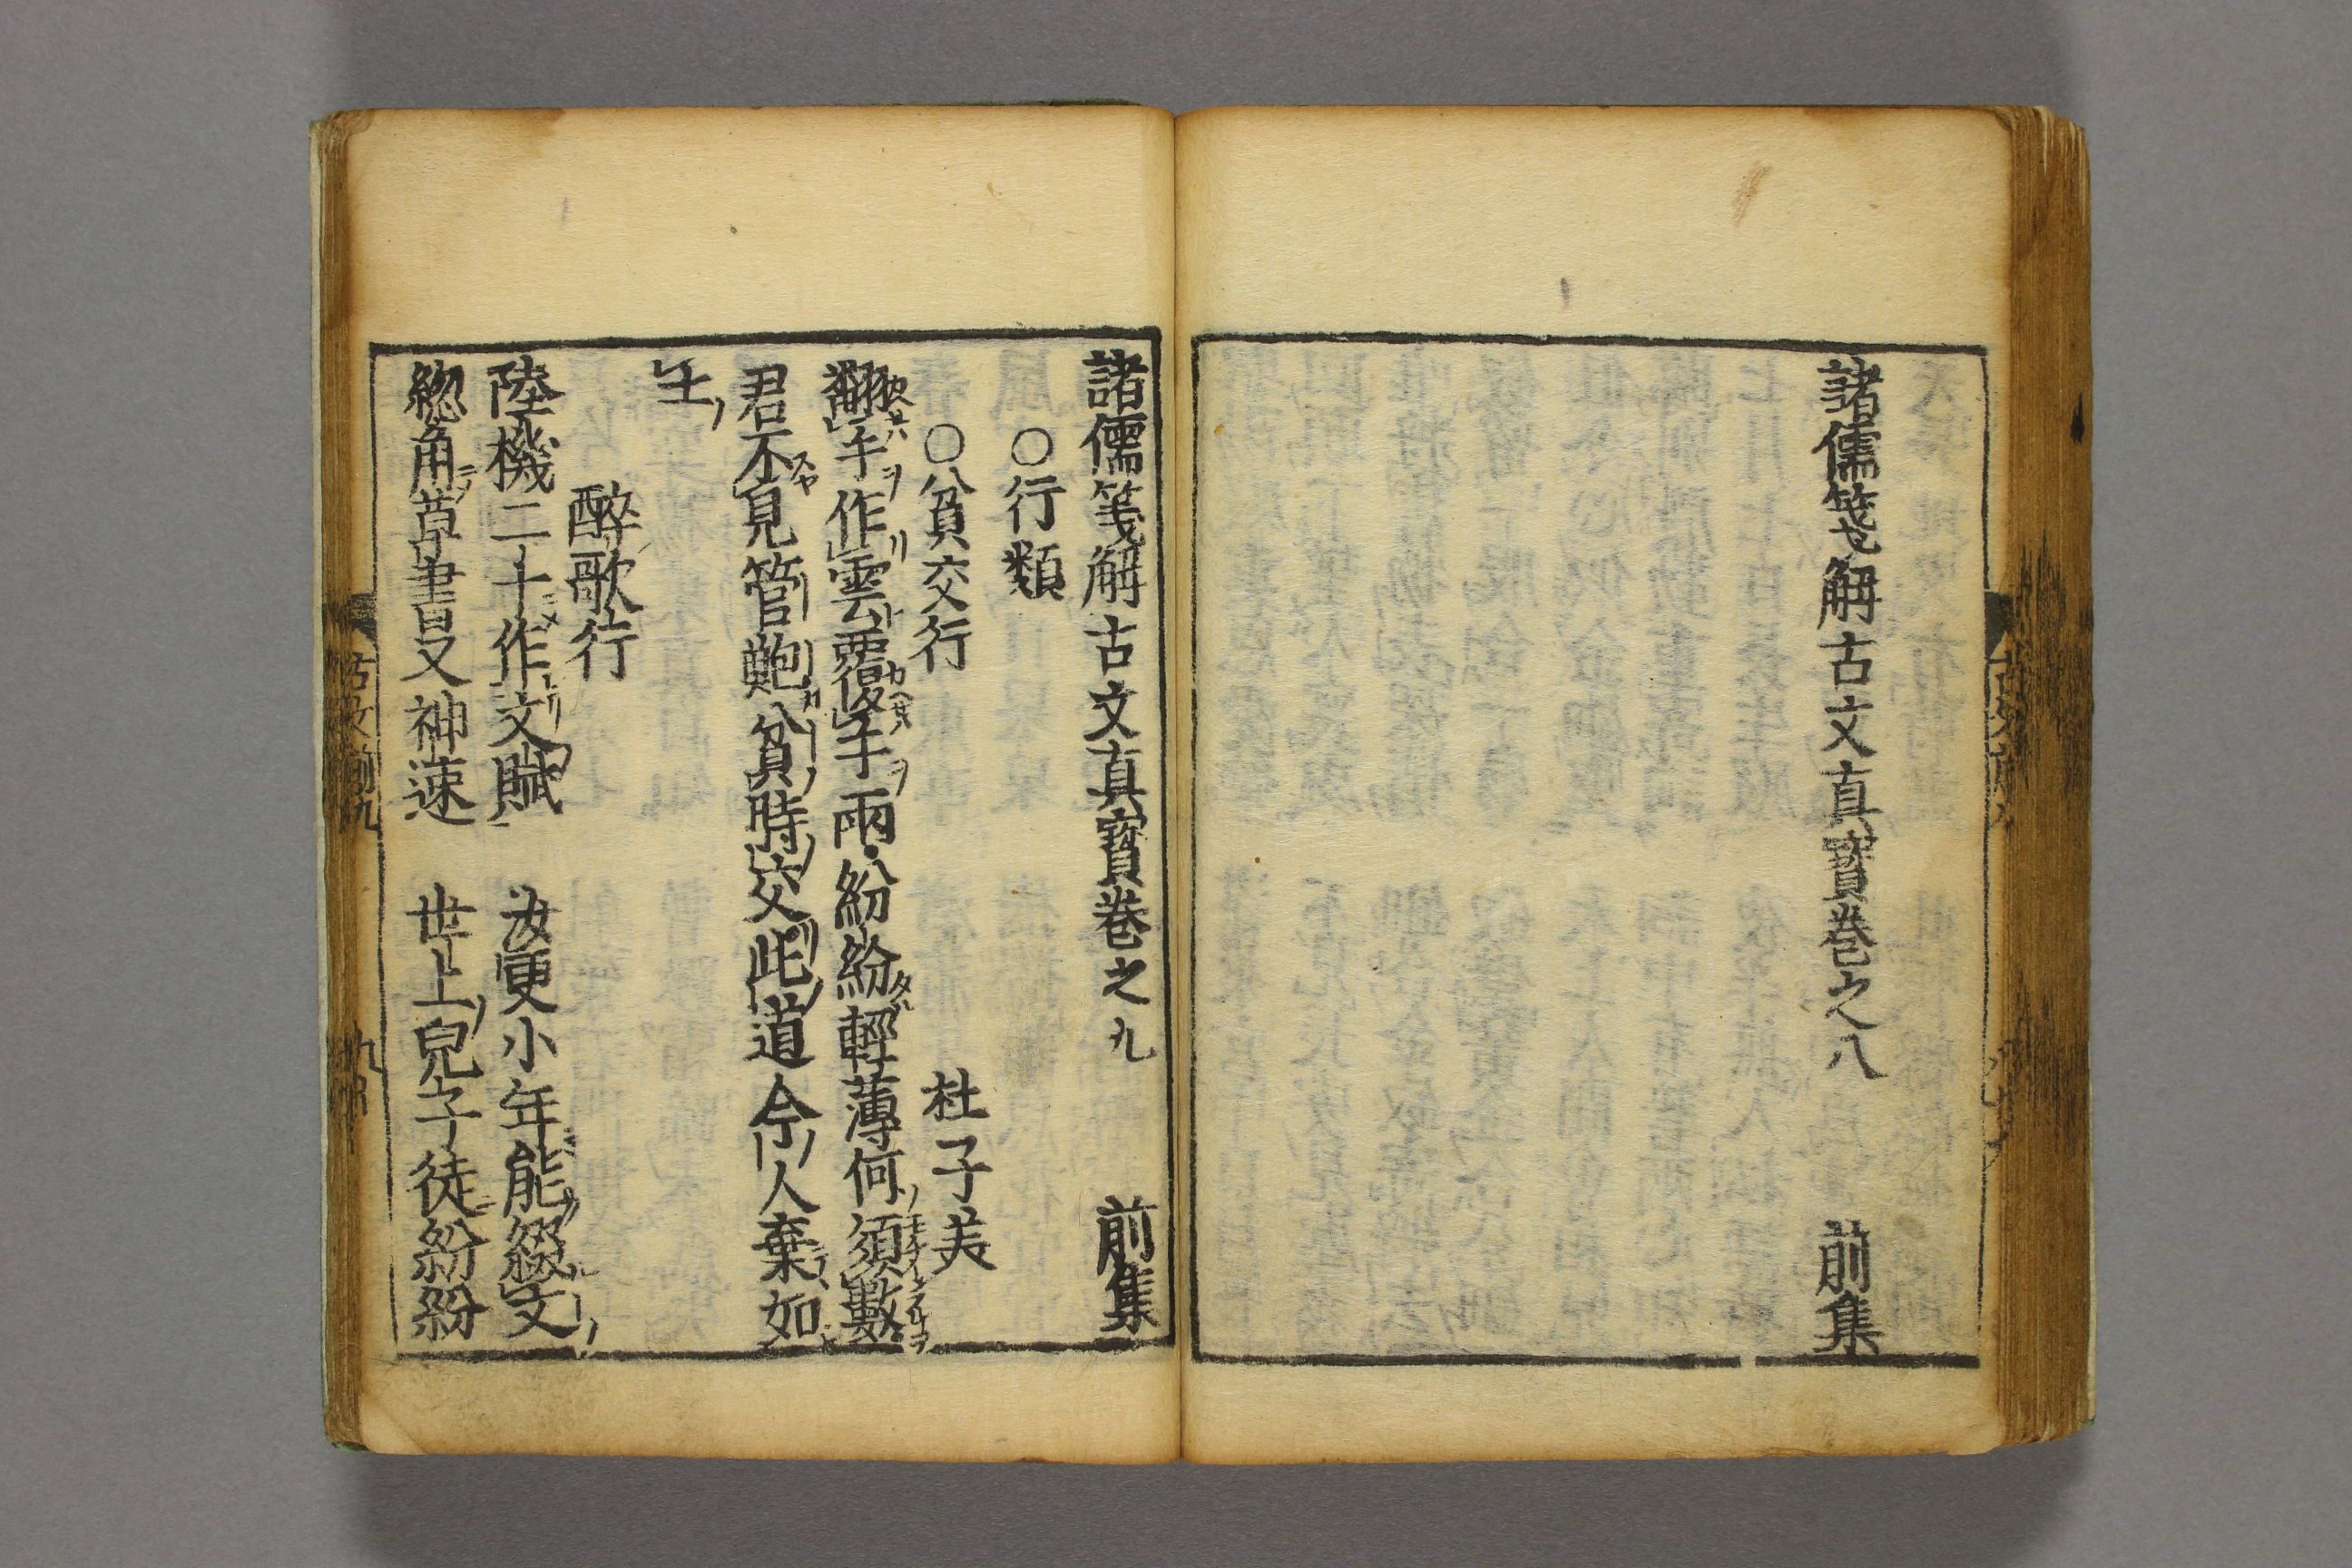 諸儒箋解古文真寶巻之八 前集
諸儒箋解古文真寶巻之九 前集
○行類
○貧交行 杜子美
翻手作雲覆手雨紛紛輕薄何須數
君不見管鮑貧時交此道今人棄如
土
醉歌行
陸機二十作文賦 汝更小年能綴文
総角草書又神速 世上兒子徒紛紛